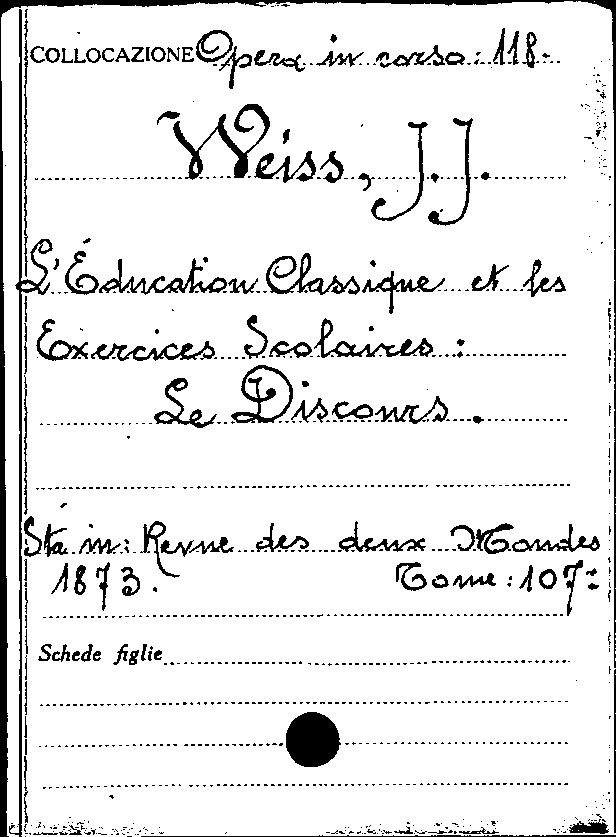 COLLOCAZIONE Opera in corso: 118.
Weiss, J.J.
L'Éducation Classique et les
Exercices Scolaires :
Le Discours.
Sta in: Revue des deux Mondes
1873. Tome: 107:
Schede figlie